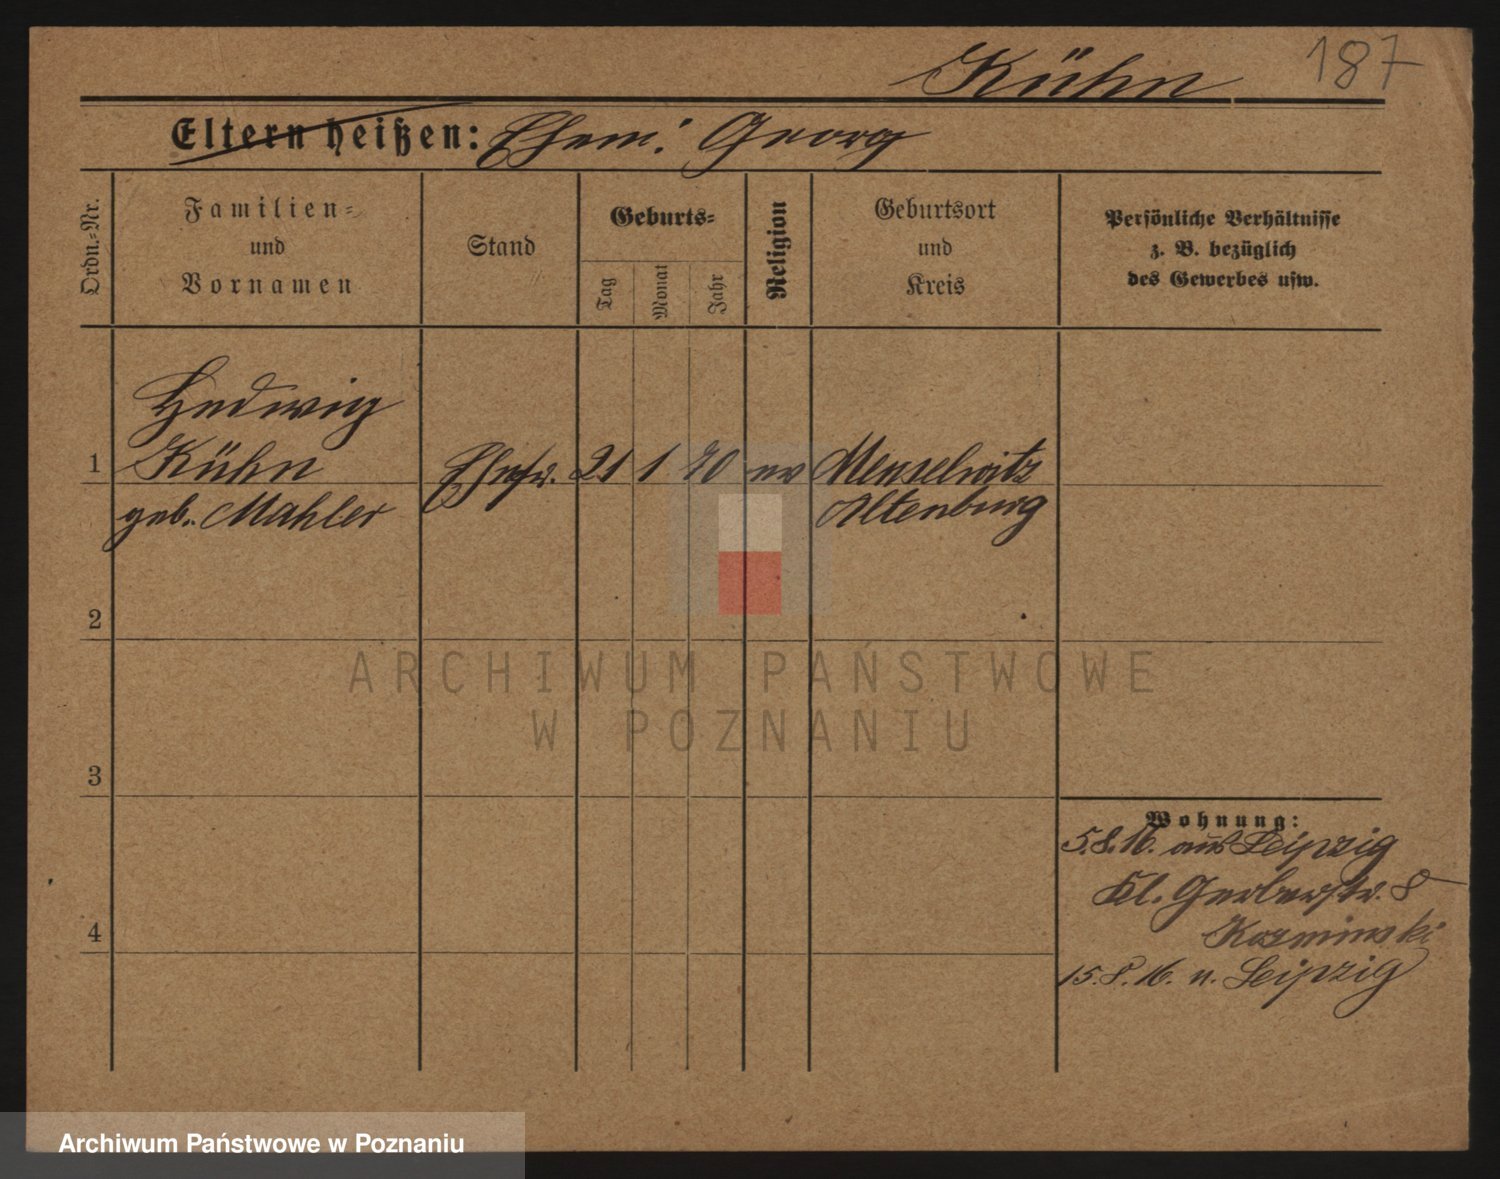 Kühn 187
Eltern heißen: Ehem: Georg
Ordn.-Nr.
Familien-
und
Vornamen
Stand
Geburts-
Tag
Monat
Jahr
Religion
Geburtsort
und
Kreis
Persönliche Verhältnisse
z. B. bezüglich
des Gewerbes usw.
Hedwig
1 Kühn Ehefr. 21 1 90 ev Meuselwitz
geb. Mahler Altenburg
2
3
4
Wohnung:
5.8.16. aus Leipzig
Kl. Gerberstr. 8
Kosminski
15.8.16. n. Leipzig
ARCHIWUM PAŃSTWOWE
W POZNANIU
Archiwum Państwowe w Poznaniu